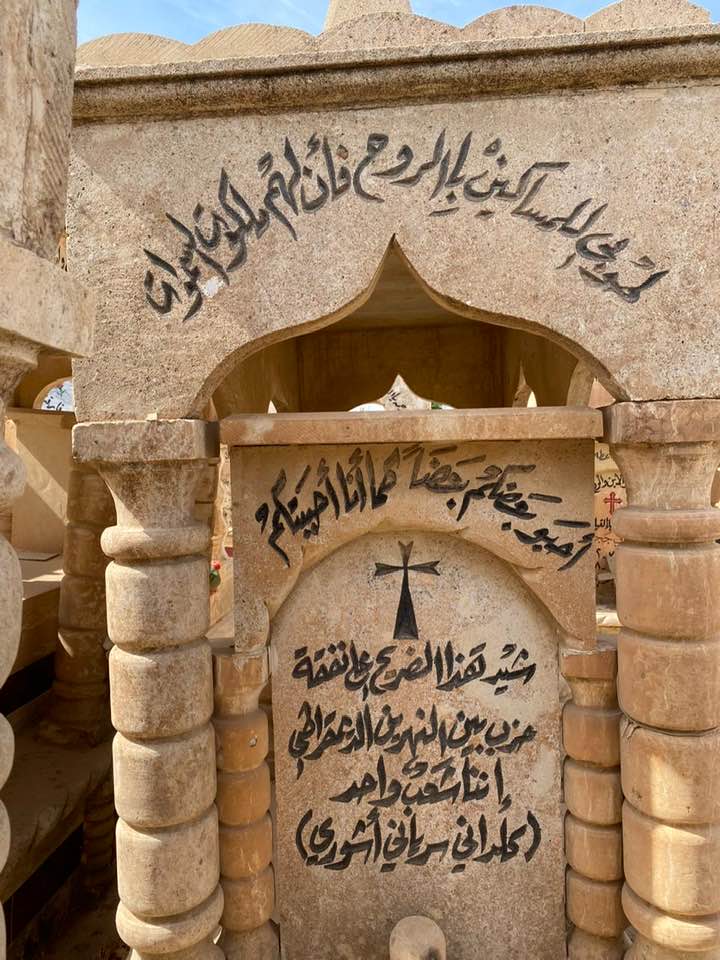 طوبى للمساكين بالروح فأن لهم ملكوت السموات
أحبو بعضكم بعضاً كما أنا أحببتكم
شيد هذا الضريح على نفقة
حزب بين النهرين الديمقراطي
إننا شعبٌ واحد
(كلداني سرياني أشوري)